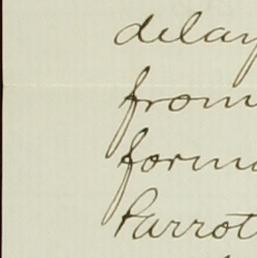 delay
from
forma
Parrot